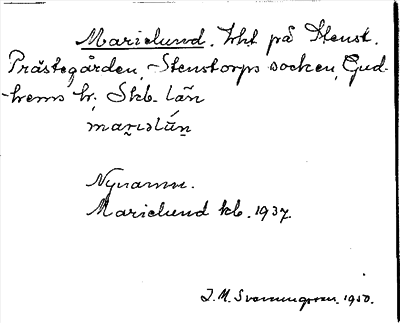 Marielund. lht på Stenst.
Prästegården, Stenstorps socken, Gud-
hems hr, Skb. län
Nynamn.
Marielund kb. 1937.
J. M. Svenningsson. 1950.